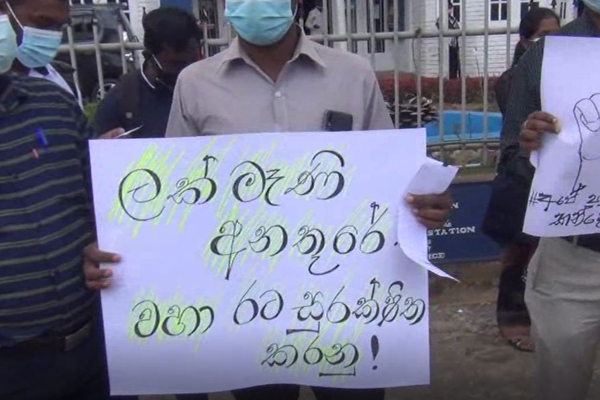 ලක් මෑණි
අනතුරේ!
වහා රට සුරක්ෂිත
කරනු !
#අපේ
STATION